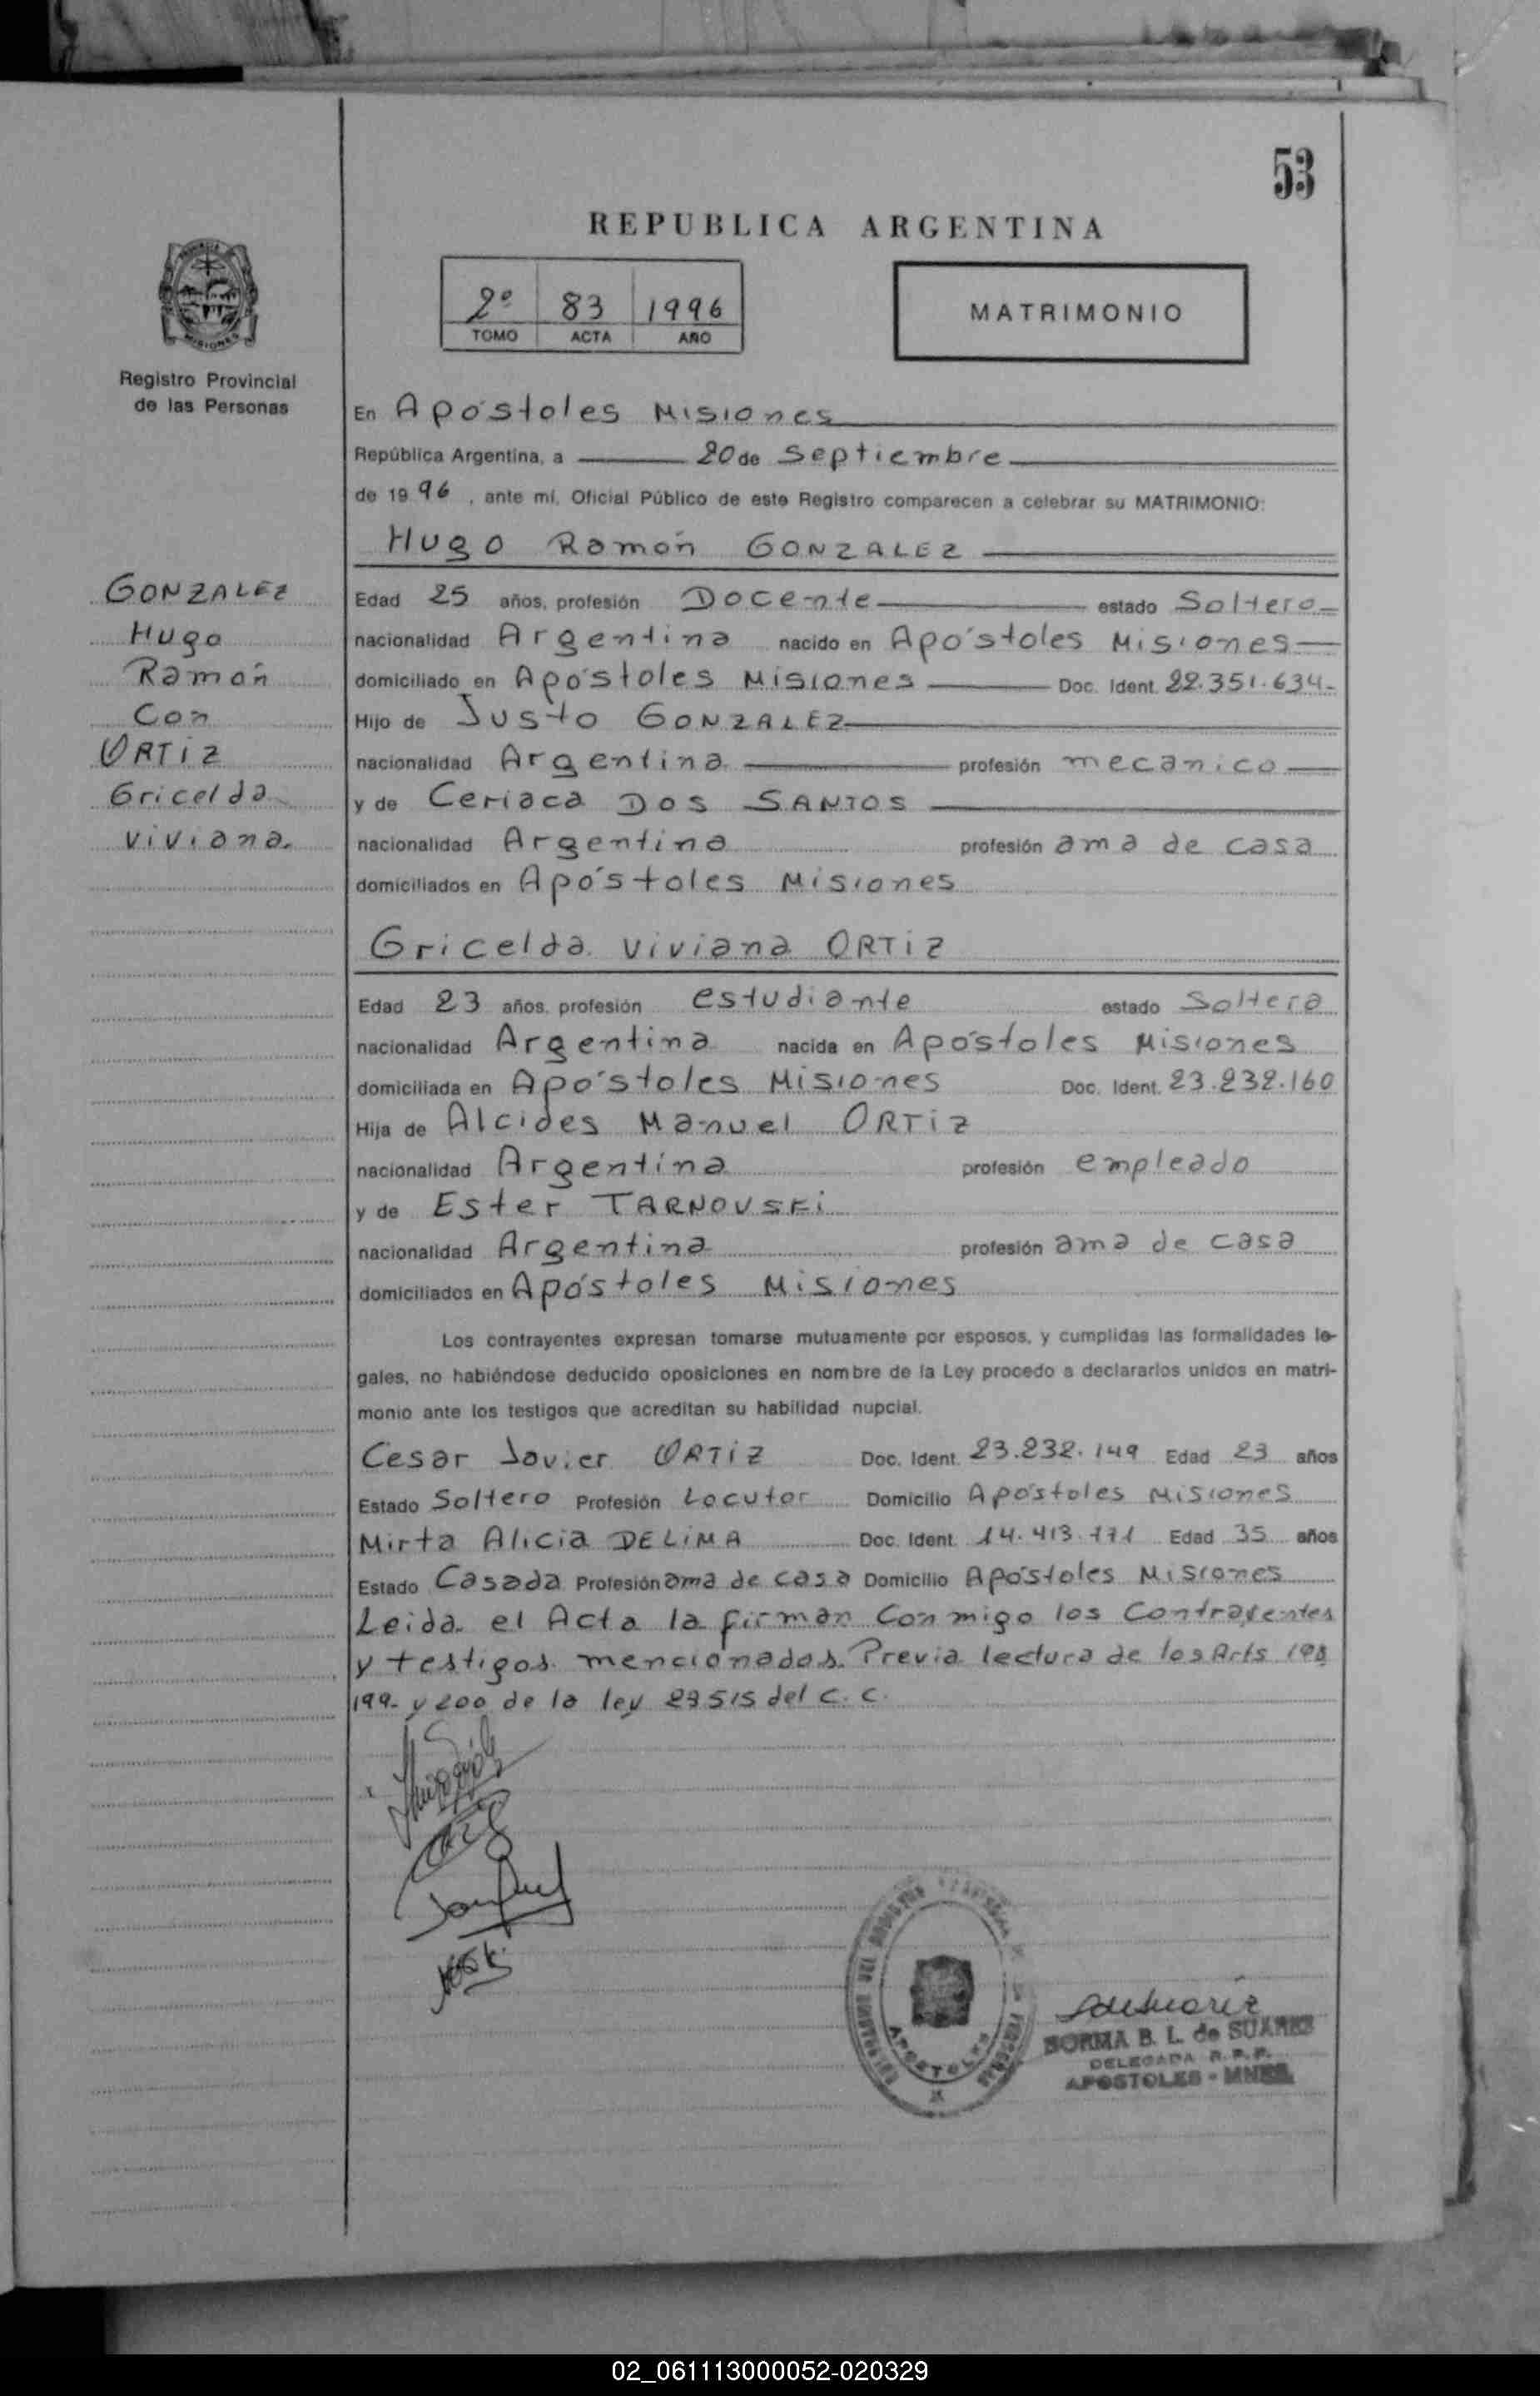 53
REPUBLICA ARGENTINA
2º 83 1996
TOMO ACTA AÑO
MATRIMONIO
Registro Provincial
de las Personas
En Apóstoles Misiones
República Argentina, a 20 de Septiembre
de 1996, ante mí, Oficial Público de este Registro comparecen a celebrar su MATRIMONIO:
Hugo Ramón GONZALEZ
GONZALEZ
Hugo
Ramón
Con
ORTIZ
Gricelda
Viviana.
Edad 25 años, profesión Docente estado Soltero
nacionalidad Argentina nacido en Apóstoles Misiones
domiciliado en Apóstoles Misiones Doc. Ident. 22.351.634
Hijo de Justo GONZALEZ
nacionalidad Argentina profesión mecanico
y de Ceriaca DOS SANTOS
nacionalidad Argentina profesión ama de casa
domiciliados en Apóstoles Misiones
Gricelda Viviana ORTIZ
Edad 23 años, profesión estudiante estado Soltera
nacionalidad Argentina nacida en Apóstoles Misiones
domiciliada en Apóstoles Misiones Doc. Ident. 23.232.160
Hija de Alcides Manuel ORTIZ
nacionalidad Argentina profesión empleado
y de Ester TARNOVSKI
nacionalidad Argentina profesión ama de casa
domiciliados en Apóstoles Misiones
Los contrayentes expresan tomarse mutuamente por esposos, y cumplidas las formalidades le-
gales, no habiéndose deducido oposiciones en nombre de la Ley procedo a declararlos unidos en matri-
monio ante los testigos que acreditan su habilidad nupcial.
Cesar Javier ORTIZ Doc. Ident. 23.232.149 Edad 23 años
Estado Soltero Profesión Locutor Domicilio Apóstoles Misiones
Mirta Alicia DELIMA Doc. Ident. 14.413.171 Edad 35 años
Estado Casada Profesión ama de casa Domicilio Apóstoles Misiones
Leida el Acta la firman Conmigo los Contrayentes
y testigos mencionados. Previa lectura de los Arts 198
199- y 200 de la ley 23515 del C. C.
APOSTOLES
NORMA B. L. de SUAREZ
DELEGADA R.P.P.
APOSTOLES - MNES.
02_061113000052-020329